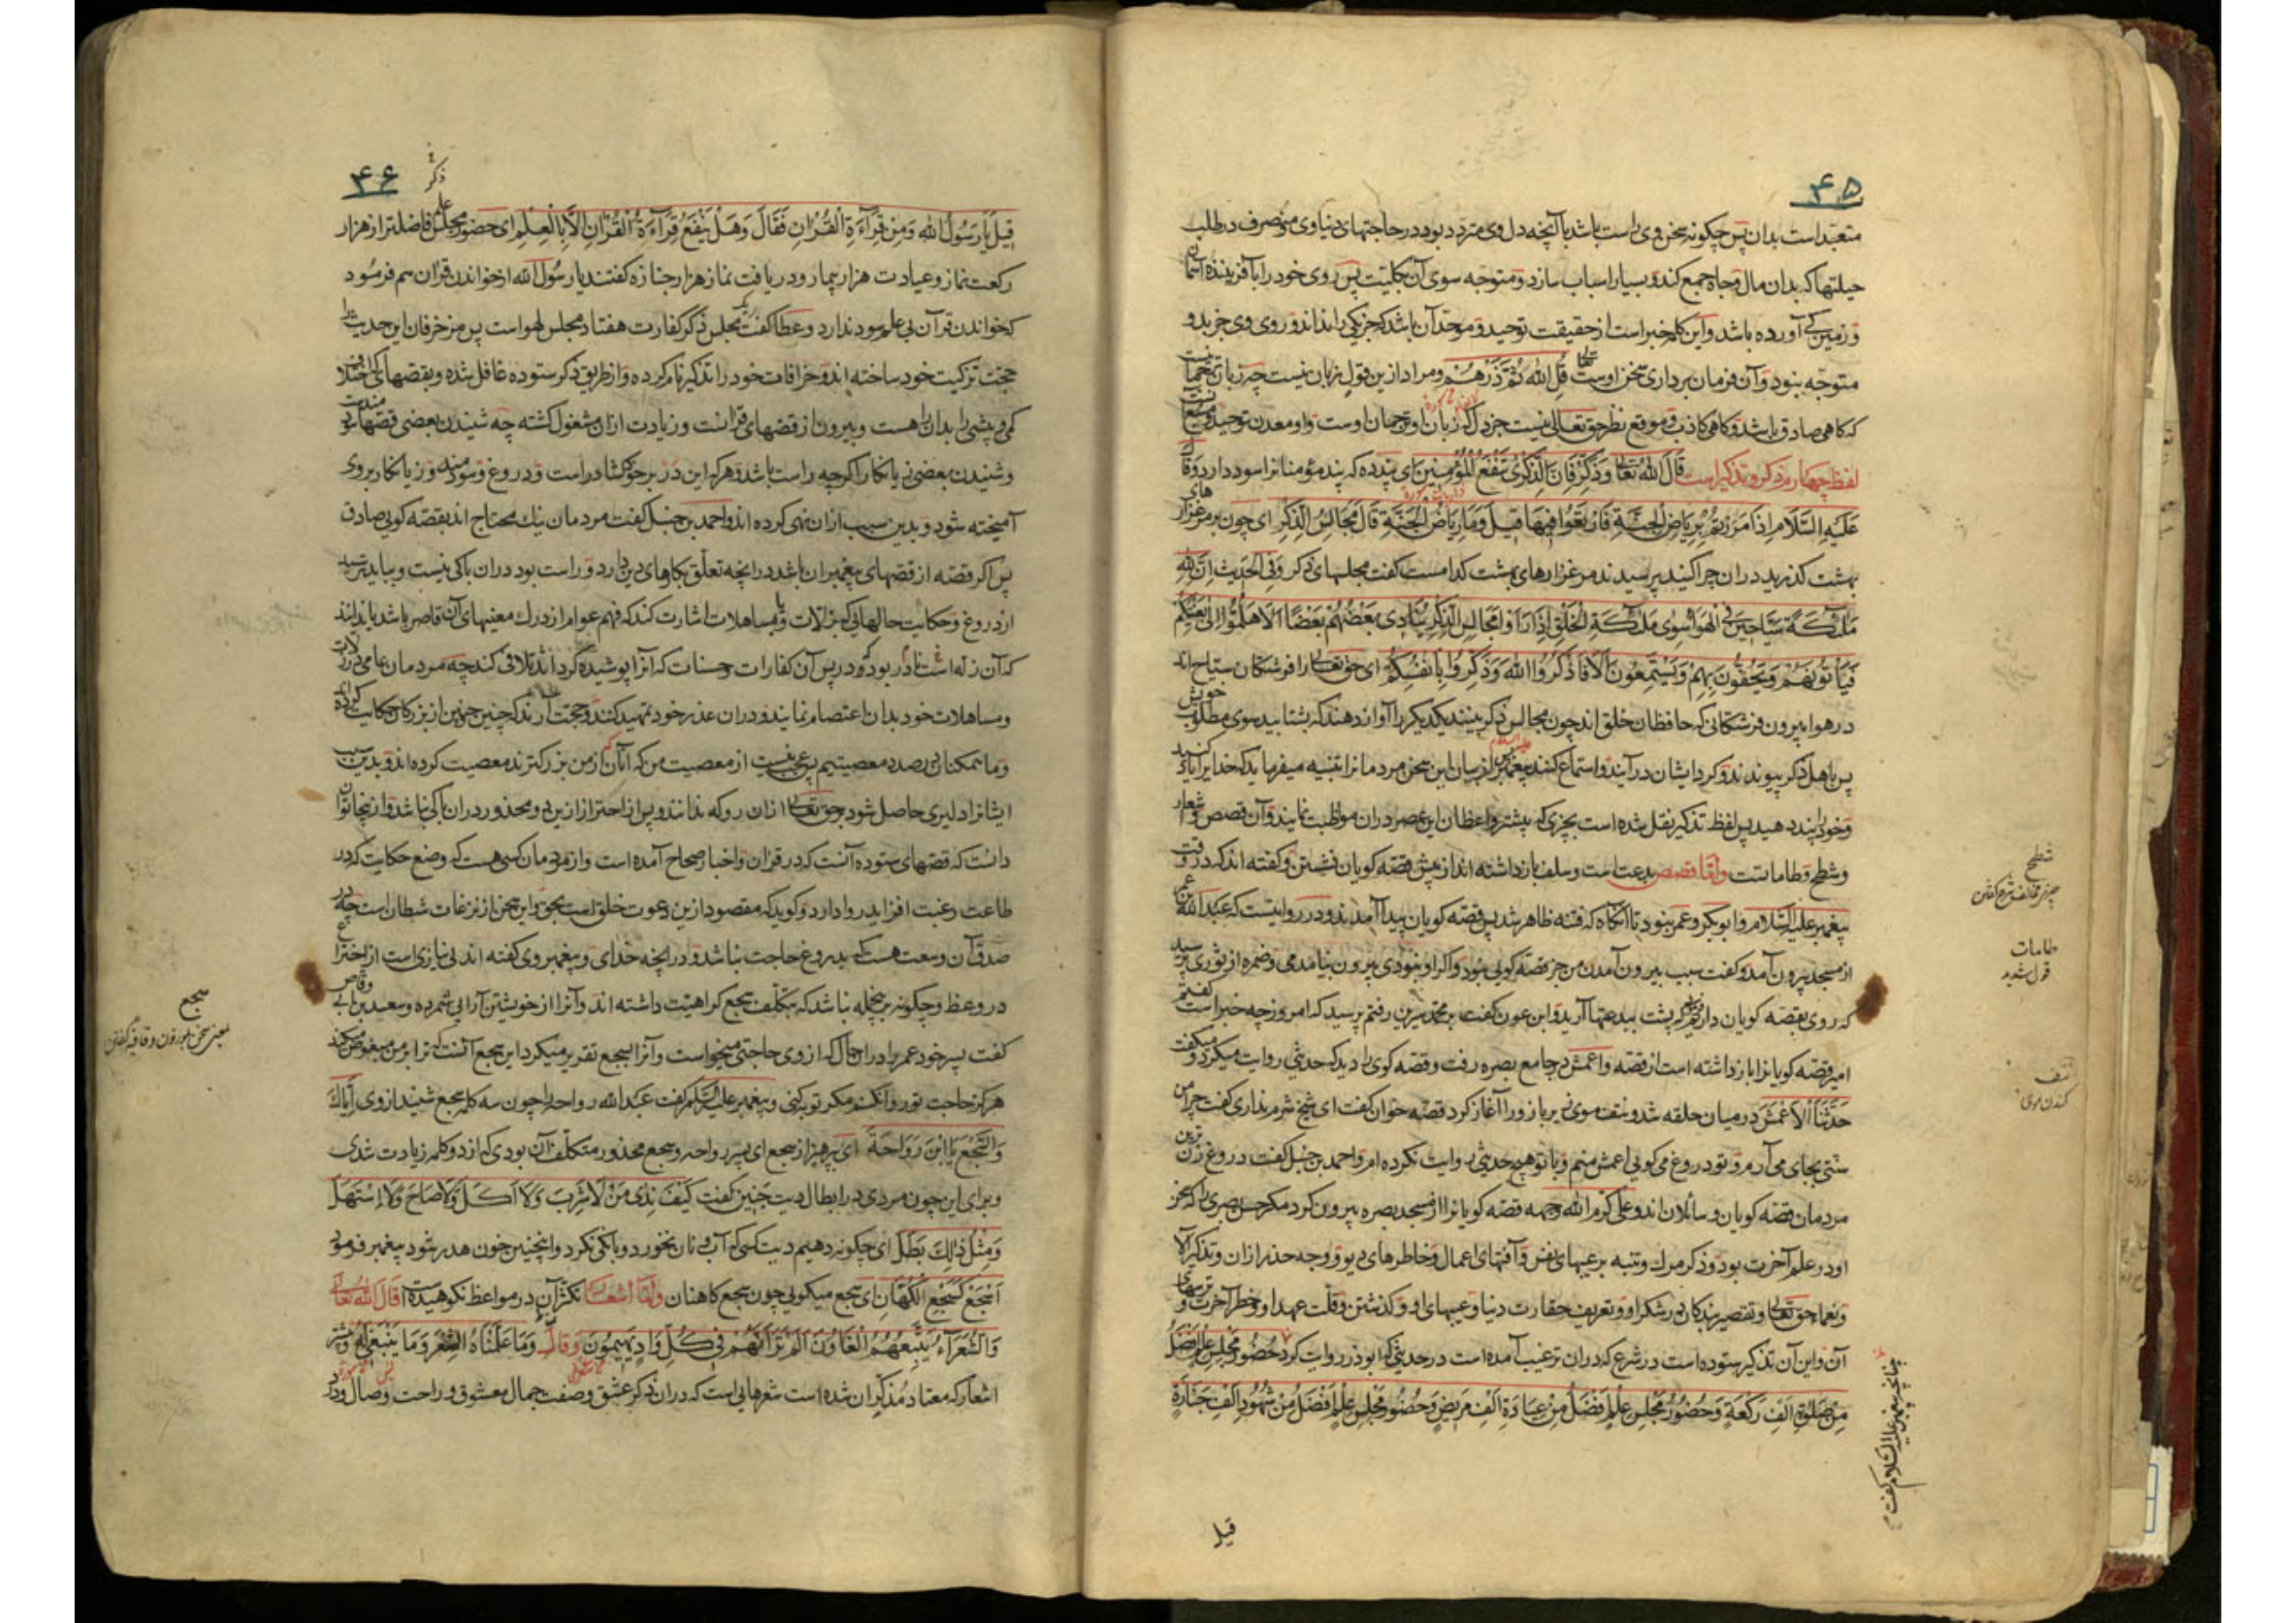 ۴۵
متعبد است بدان پس چگونه سخن وی راست باشد با آنچه دل وی متردد بود در حاجتهای دنیاوی و منصرف در طلب
حیلتها که بدان مال و جاه جمع کند و بسیار اسباب سازد و متوجه سوی آن بکلیت پس روی خود را بآفریننده آسمان
و زمین کی آورده باشد و این کلمه خبر است از حقیقت توحید و موحد آن باشد که جز یکی را نداند و روی وی جز بدو
متوجه نبود و آن فرمان برداری سخن اوست تعالی قل الله ثم ذرهم و مراد ازین قول زبان نیست چه زبان ترجمانست
که گاهی صادق باشد و گاهی کاذب و موقع نظر حق تعالی نیست جز دل که زبان او ترجمان اوست و او معدن توحید و منبع
لفظ چهارم ذکر و تذکیر است قال الله تعالی وذکر فان الذکری تنفع المؤمنین ای پند ده که پند مؤمنانرا سود دارد و قال
علیه السلام اذا مررتم بریاض الجنة فارتعوا فیها قیل وما ریاض الجنة قال مجالس الذکر ای چون بر مرغزارهای
بهشت گذرید دران چرا کنید پرسیدند مرغزارهای بهشت کدامست گفت مجلسهای ذکر وفی الحدیث ان لله
ملائکة سیاحین فی الهواء سوی ملائکة الخلق اذا راوا مجالس الذکر ینادی بعضهم بعضا الا هلموا الی بغیتکم
فیأتونهم ویحفون بهم ویستمعون الا فاذکروا الله وذکروا بانفسکم ای حق تعالی را فرشتگان سیاح اند
در هوا بیرون فرشتگانی که حافظان خلق اند چون مجالس ذکر بینند یکدیگر را آواز دهند که بشتابید سوی مطلوب خویش
پس باهل ذکر پیوندند و گرد ایشان درآیند و استماع کنند پیغمبر علیه السلام از بیان این سخن مردمانرا تنبیه میفرماید که خدایرا یاد کنید
و خود را پند دهید پس لفظ تذکیر نقل شده است بچیزی که بیشتر واعظان این عصر دران مواظبت نمایند و آن قصص و اشعار
و شطح و طاماتست واما قصص بدعت است و سلف باز داشته اند از پیش قصه گویان نشستن و گفته اند که در وقت
پیغمبر علیه السلام و ابوبکر و عمر نبود تا آنگاه که فتنه ظاهر شد پس قصه گویان پیدا آمدند و در روایتست که عبدالله بن عمر
از مسجد بیرون آمد و گفت سبب بیرون آمدن من جز قصه گویی نبود و اگر او نبودی بیرون نیامدمی و ضمره از ثوری پرسید
که روی بقصه گویان داریم گفت پشت بیدعتها آرید و ابن عون گفت بر محمد سیرین رفتم پرسید که امروز چه خبر است گفتم
امیر قصه گویانرا باز داشته است از قصه و اعمش در جامع بصره رفت و قصه گوی را دید که حدیثی روایت میکرد و میگفت
حدثنا الاعمش در میان حلقه شد و نتف موی زیر بازو را آغاز کرد قصه خوان گفت ای شیخ شرم نداری گفت چرا من
سنتی بجای می آرم و تو دروغ می گویی اعمش منم و با تو هیچ حدیثی روایت نکرده ام و احمد بن حنبل گفت دروغ زن ترین
مردمان قصه گویان و سائلان اند و علی کرم الله وجهه قصه گویانرا از مسجد بصره بیرون کرد مگر حسن بصری را که سخن
او در علم آخرت بود و ذکر مرگ و تنبه بر عیبهای نفس و آفتهای اعمال و خاطرهای دیو و وجه حذر ازان و تذکیر آلا
و نعماء حق تعالی و تقصیر بندگان در شکر او و تعریف حقارت دنیا و عیبهای او و گذشتن و قلت عهد او و خطر آخرت و ترسهای
آن و این آن تذکیر ستوده است در شرع که دران ترغیب آمده است در حدیثی که ابوذر روایت کرد حضور مجلس علم افضل
من صلوة الف رکعة وحضور مجلس علم افضل من عیادة الف مریض وحضور مجلس علم افضل من شهود الف جنازة
چنانچه پیغمبر علیه السلام گفت
قیل
شطح
چیز مخالف شرع گفتن
طامات
قول شدید
نتف
کندن موی
۴۶
ذکر
قیل یا رسول الله ومن قراءة القران فقال وهل ینفع قراءة القران الا بالعلم ای حضور مجلس علم فاضلتر از هزار
رکعت نماز و عیادت هزار بیمار و دریافت نماز هزار جنازه گفتند یا رسول الله از خواندن قران هم فرمود
که خواندن قرآن بی علم سود ندارد و عطا گفت یک مجلس ذکر کفارت هفتاد مجلس لهو است پس مزخرفان این حدیث را
حجت تزکیت خود ساخته اند و خرافات خود را تذکیر نام کرده و از طریق ذکر ستوده غافل شده و بقصهایی که اختلاف
کمی و بیشی را بدان راهست و بیرون از قصهای قرانست و زیادت ازان مشغول گشته چه شنیدن بعضی قصها سودمندست
و شنیدن بعضی زیانکار اگرچه راست باشد و هرکه این در بر خود گشاد راست و دروغ و سودمند و زیانکار بروی
آمیخته شود و بدین سبب ازان نهی کرده اند و احمد بن حنبل گفت مردمان نیک محتاج اند بقصه گویی صادق
پس اگر قصه از قصهای پیغمبران باشد در آنچه تعلق بکارهای دین دارد و راست بود دران باکی نیست و بباید ترسید
از دروغ و حکایت حالهایی که بزلات و یا بمساهلات اشارت کند که فهم عوام از درک معنیهای آن قاصر باشد یا بدانند
که آن زله است نادر بود و در پس آن کفارات و حسنات که آنرا پوشیده گرداند تلافی کند چه مردمان عامی در زلات
و مساهلات خود بدان اعتصام نمایند و دران عذر خود تمهید کنند و حجت آرند که چنین چنین از بزرگان حکایت کرده اند
و ما همکنان در صدد معصیتیم پس عجب نیست از معصیت من که آنان که از من بزرگترند معصیت کرده اند و بدین سبب
ایشانرا دلیری حاصل شود بر حق تعالی ازان رو که ندانند و پس از احتراز ازین دو محذور دران باکی نباشد و از ینجا توان
دانست که قصهای ستوده آنست که در قران و اخبار صحاح آمده است و از مردمان کسی هست که وضع حکایت که در
طاعت رغبت افزاید روا دارد و گوید که مقصود ازین دعوت خلق است بحق و این سخن از نزغات شیطان است چه در
صدق آن وسعت هست که بدروغ حاجت نباشد و در آنچه خدای و پیغمبر وی گفته اند بی نیازی است از اختراع
در وعظ و چگونه برین جمله نباشد که بتکلف سجع کراهیت داشته اند و آنرا از خویشتن آرایی شمرده و سعد بن ابی وقاص
گفت پسر خود عمر را در آن حال که از وی حاجتی میخواست و آنرا بسجع تقریر میکرد این سجع آنست که ترا بر من مبغوض میکند
هرگز حاجت تو روا نکنم مگر توبه کنی و پیغمبر علیه السلام گفت عبدالله رواحه را چون سه کلمه سجع شنید از وی ایاک
والسجع یا ابن رواحة ای پرهیز از سجع ای پسر رواحه و سجع محذور متکلف آن بودی که از دو کلمه زیادت شدی
و برای این چون مردی در ابطال دیت جنین گفت کیف ندی من لا شرب ولا اکل ولا صاح ولا استهل
ومثل ذلک بطل ای چگونه دهیم دیت کسی که آب و نان نخورد و بانگی نکرد و اینچنین خون هدر شود پیغمبر فرمود
اسجع کسجع الکهان ای سجع میگویی چون سجع کاهنان واما اشعار تکثر آن در مواعظ نکوهیده است قال الله تعالی
والشعراء یتبعهم الغاوون الم تر انهم فی کل واد یهیمون وقال وما علمناه الشعر وما ینبغی له و بیشتر
اشعار که معتاد مذکران شده است شعرهایی است که دران ذکر عشق و صفت جمال معشوق و راحت وصال و درد
سجع
سخن موزون و قافیه گفتن